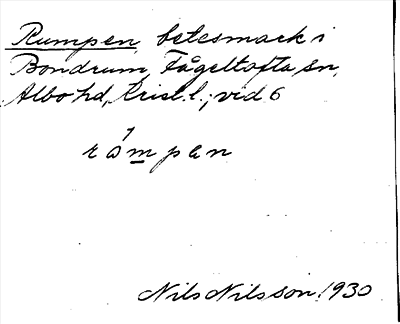 Rumpen betesmark i
Bondrum, Fågeltofta sn,
Albo hd, Krist. l.; vid 6
råmpan
Nils Nilsson 1930